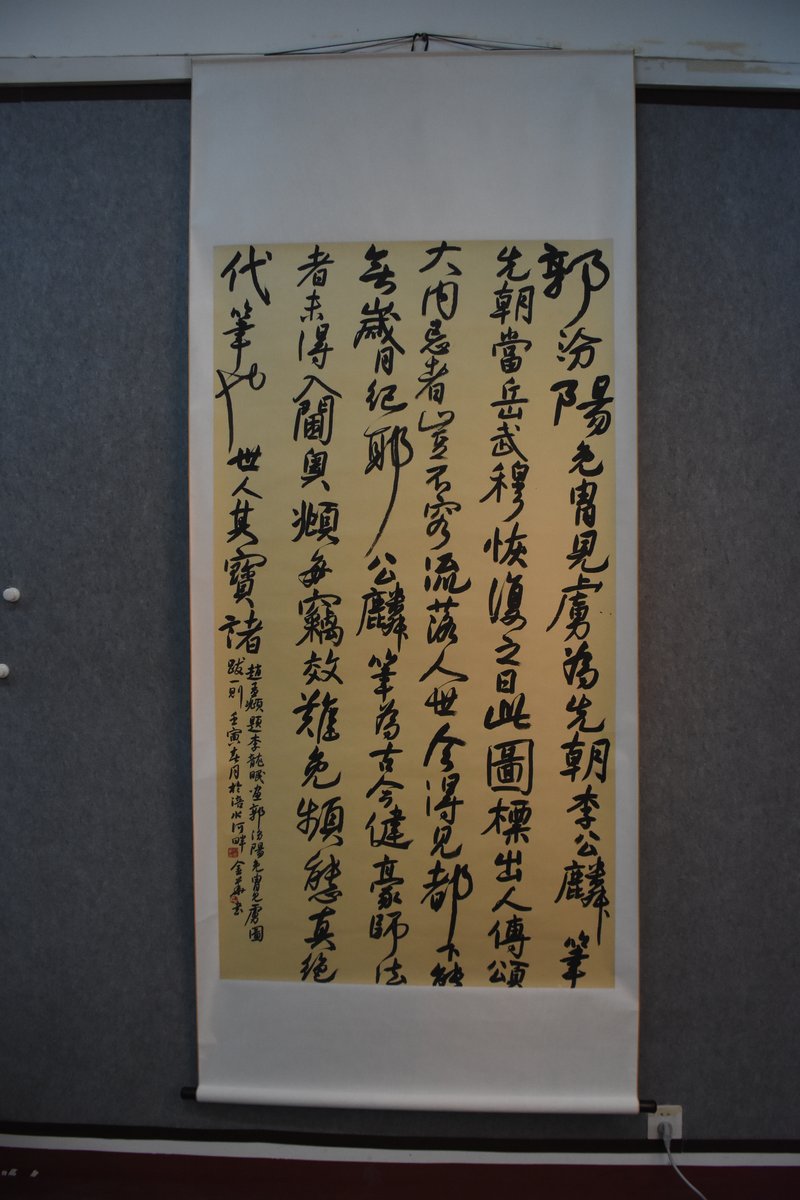 郭汾陽免胄見虜為先朝李公麟筆
先朝當岳武穆恢復之日此圖標出人傳頌
大内忌者豈不容流落人世今得見都下能
無嵗月纪耶公麟筆為古今健豪師法
者未得入閫奥頫每竊效難免頻態真絶
代筆也世人其寶諸
趙孟頫題李龍眠畫郭汾陽免胄見虜圖
跋一則壬寅春月於洛水河畔金華书